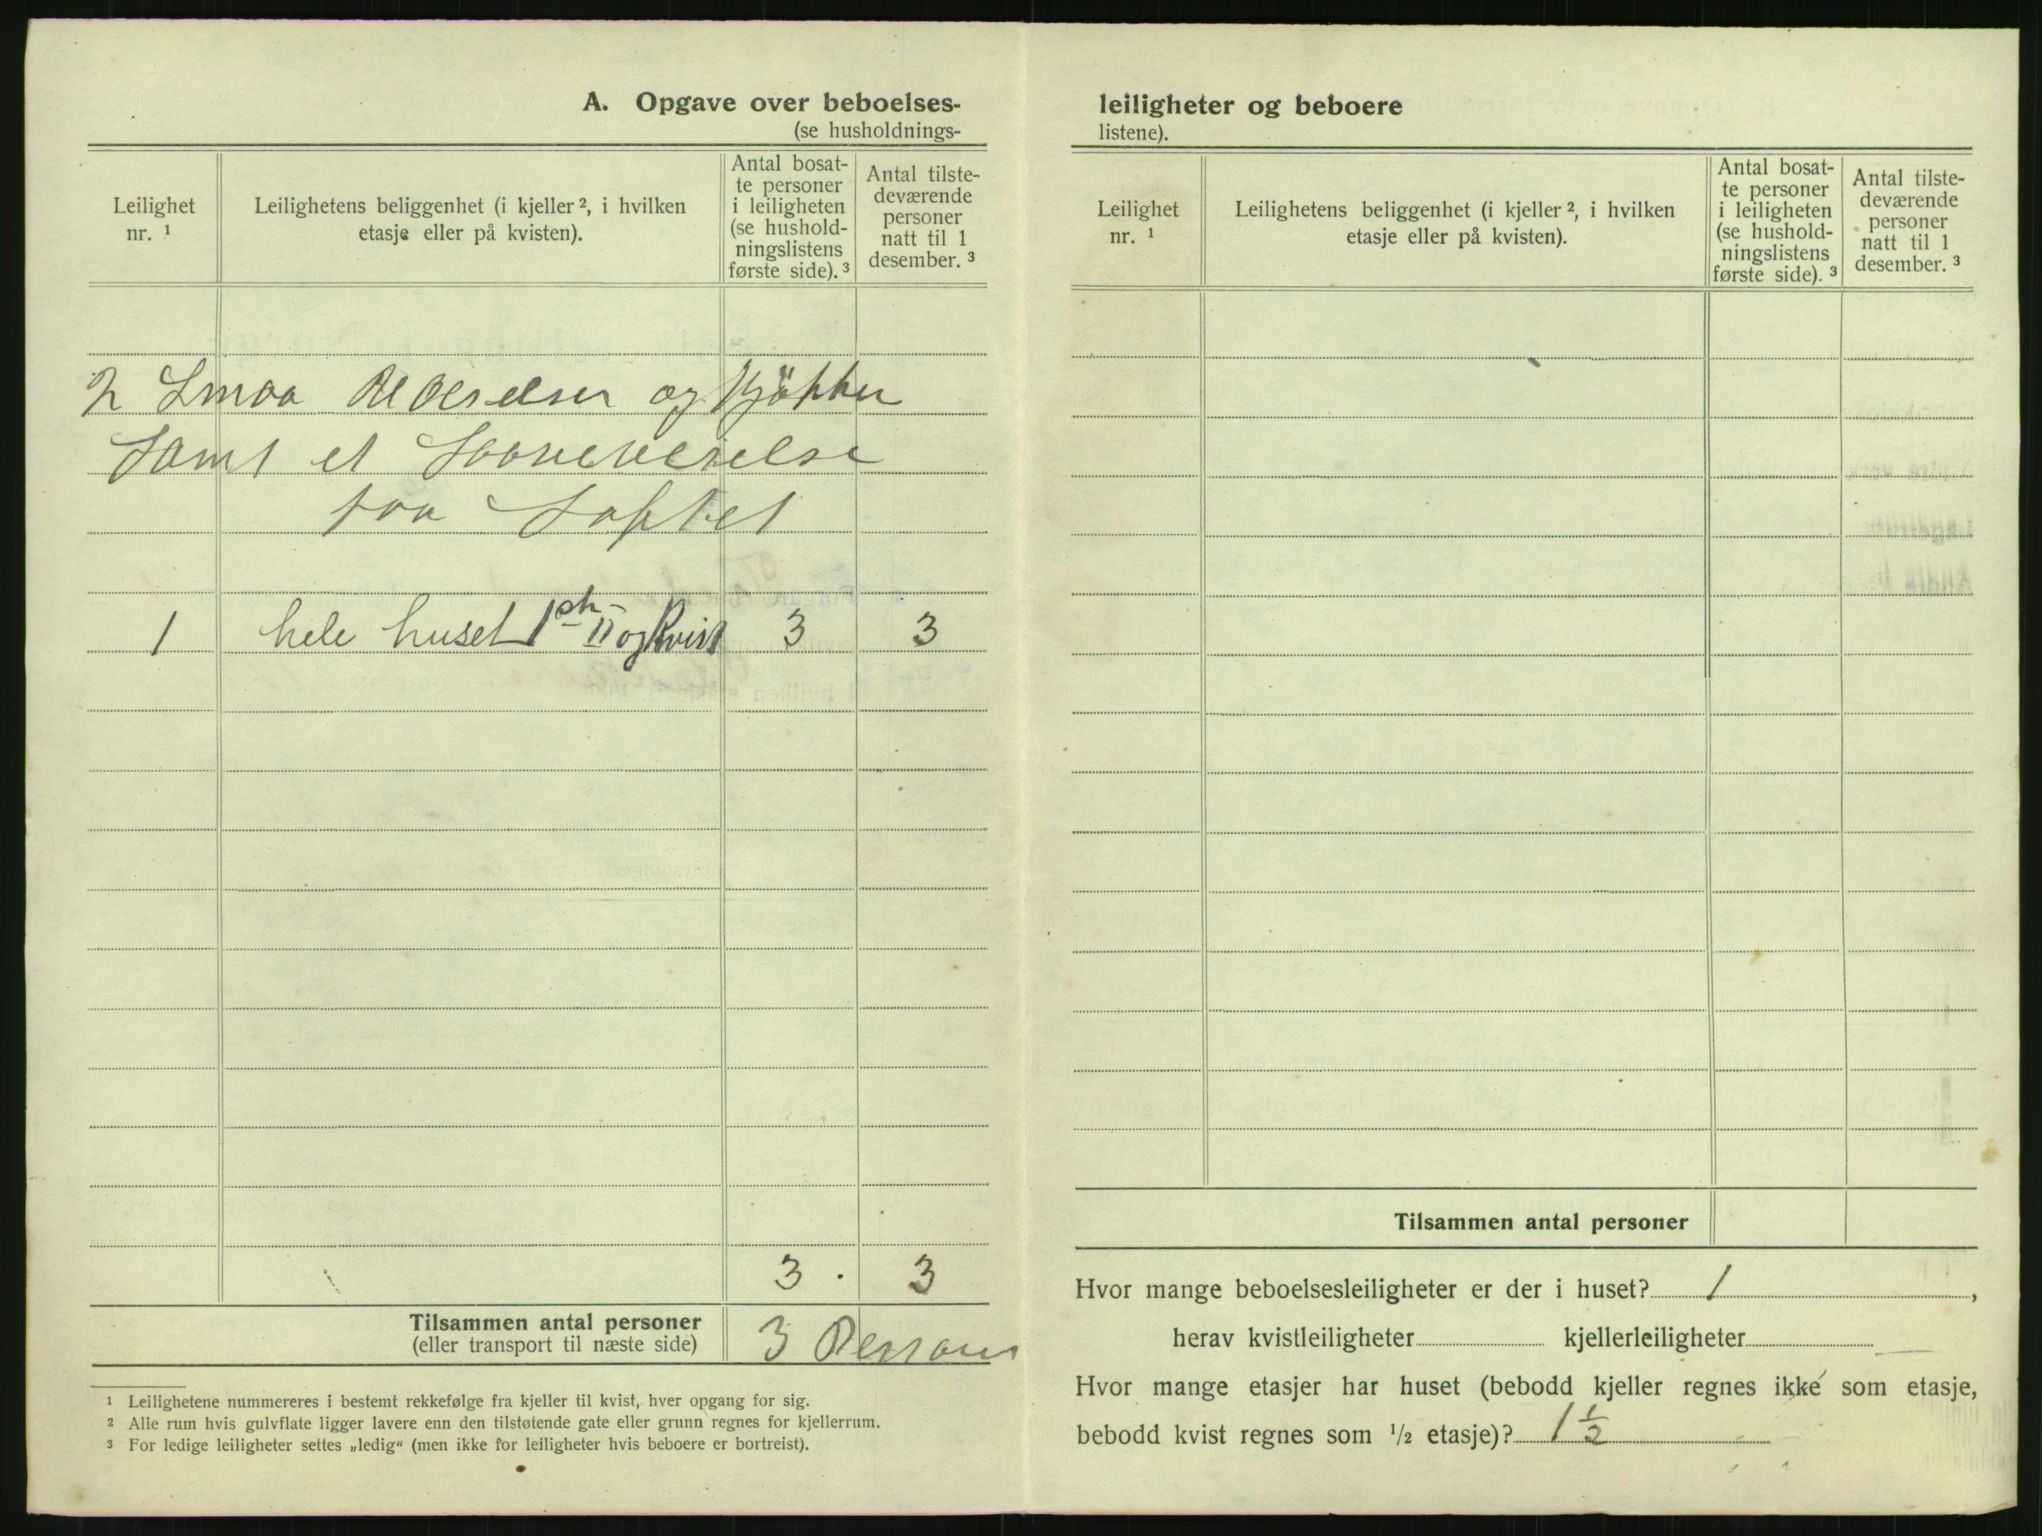 A. Opgave over beboelses-
(se husholdnings-
Leilighet nr. ¹
Leilighetens beliggenhet (i kjeller ², i hvilken etasje eller på kvisten).
Antal bosat-
te personer
i leiligheten
(se hushold-
ningslistens
første side). ³
Antal tilste-
deværende
personer
natt til 1
desember. ³
2 Smaa og Kjøkken
Samt et Soveverelse
paa Loftet
1 hele huset 1ste II og Kvist 3 3
3 . 3
Tilsammen antal personer 3 Person
(eller transport til næste side)
¹ Leilighetene nummereres i bestemt rekkefølge fra kjeller til kvist, hver opgang for sig.
² Alle rum hvis gulvflate ligger lavere enn den tilstøtende gate eller grunn regnes for kjellerrum.
³ For ledige leiligheter settes „ledig“ (men ikke for leiligheter hvis beboere er bortreist).
leiligheter og beboere
listene).
Leilighet nr. ¹
Leilighetens beliggenhet (i kjeller ², i hvilken etasje eller på kvisten).
Antal bosat-
te personer
i leiligheten
(se hushold-
ningslistens
første side). ³
Antal tilste-
deværende
personer
natt til 1
desember. ³
Tilsammen antal personer
Hvor mange beboelsesleiligheter er der i huset? 1 ,
herav kvistleiligheter kjellerleiligheter
Hvor mange etasjer har huset (bebodd kjeller regnes ikke som etasje,
bebodd kvist regnes som ¹/₂ etasje)? 1 ½